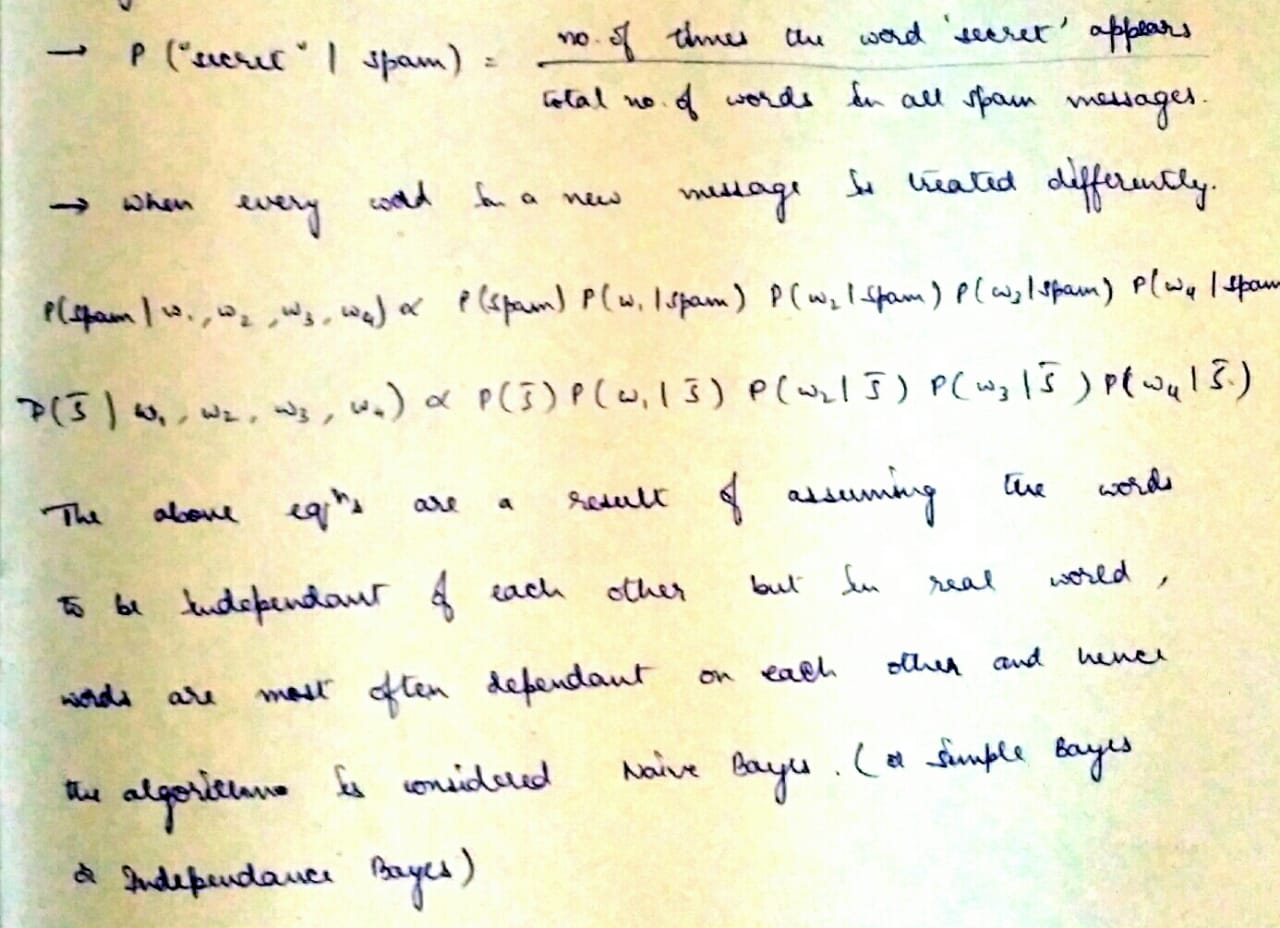 → P ("secret" | spam) = no. of times the word 'secret' appears
total no. of words in all spam messages.
→ when every word in a new message is treated differently.
P(spam | w₁, w₂, w₃, w₄) ∝ P(spam) P(w₁ | spam) P(w₂ | spam) P(w₃ | spam) P(w₄ | spam
P(s̄ | w₁, w₂, w₃, w₄) ∝ P(s̄) P(w₁ | s̄) P(w₂ | s̄) P(w₃ | s̄) P(w₄ | s̄)
The above eqⁿs are a result of assuming the words
to be independant of each other but in real world,
words are most often dependant on each other and hence
the algorithm is considered Naive Bayes. (or simple Bayes
or Independance Bayes)